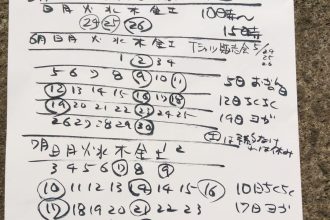 日月火水木金土
10時〜
29 25 26
15時
6月 日月火水木金土 Tシャツ
1 2 3 4
5 6 7 8 9 10 11
5日
12 13 14 15 16 17 18
12日 ちくちく
19 20 21 22 23 24 25
19日 ヨガ
26 27 28 29 30
7月 日月火水木金土
1 2
3 4 5 6 7 8 9
10 11 12 13 14 15 16
10日 ちくちく
17 18 19 20 21 22 23
17日 ヨガ